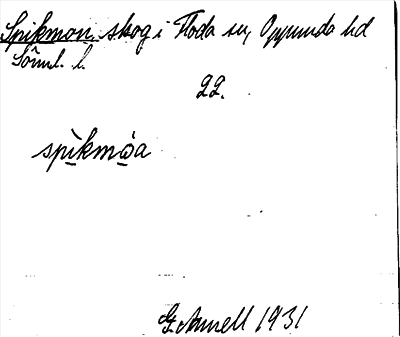 Spikmon. skog i Floda sn, Oppunda hd
Söml. l.
22.
spìkmò̱a
G. Arnell 1931